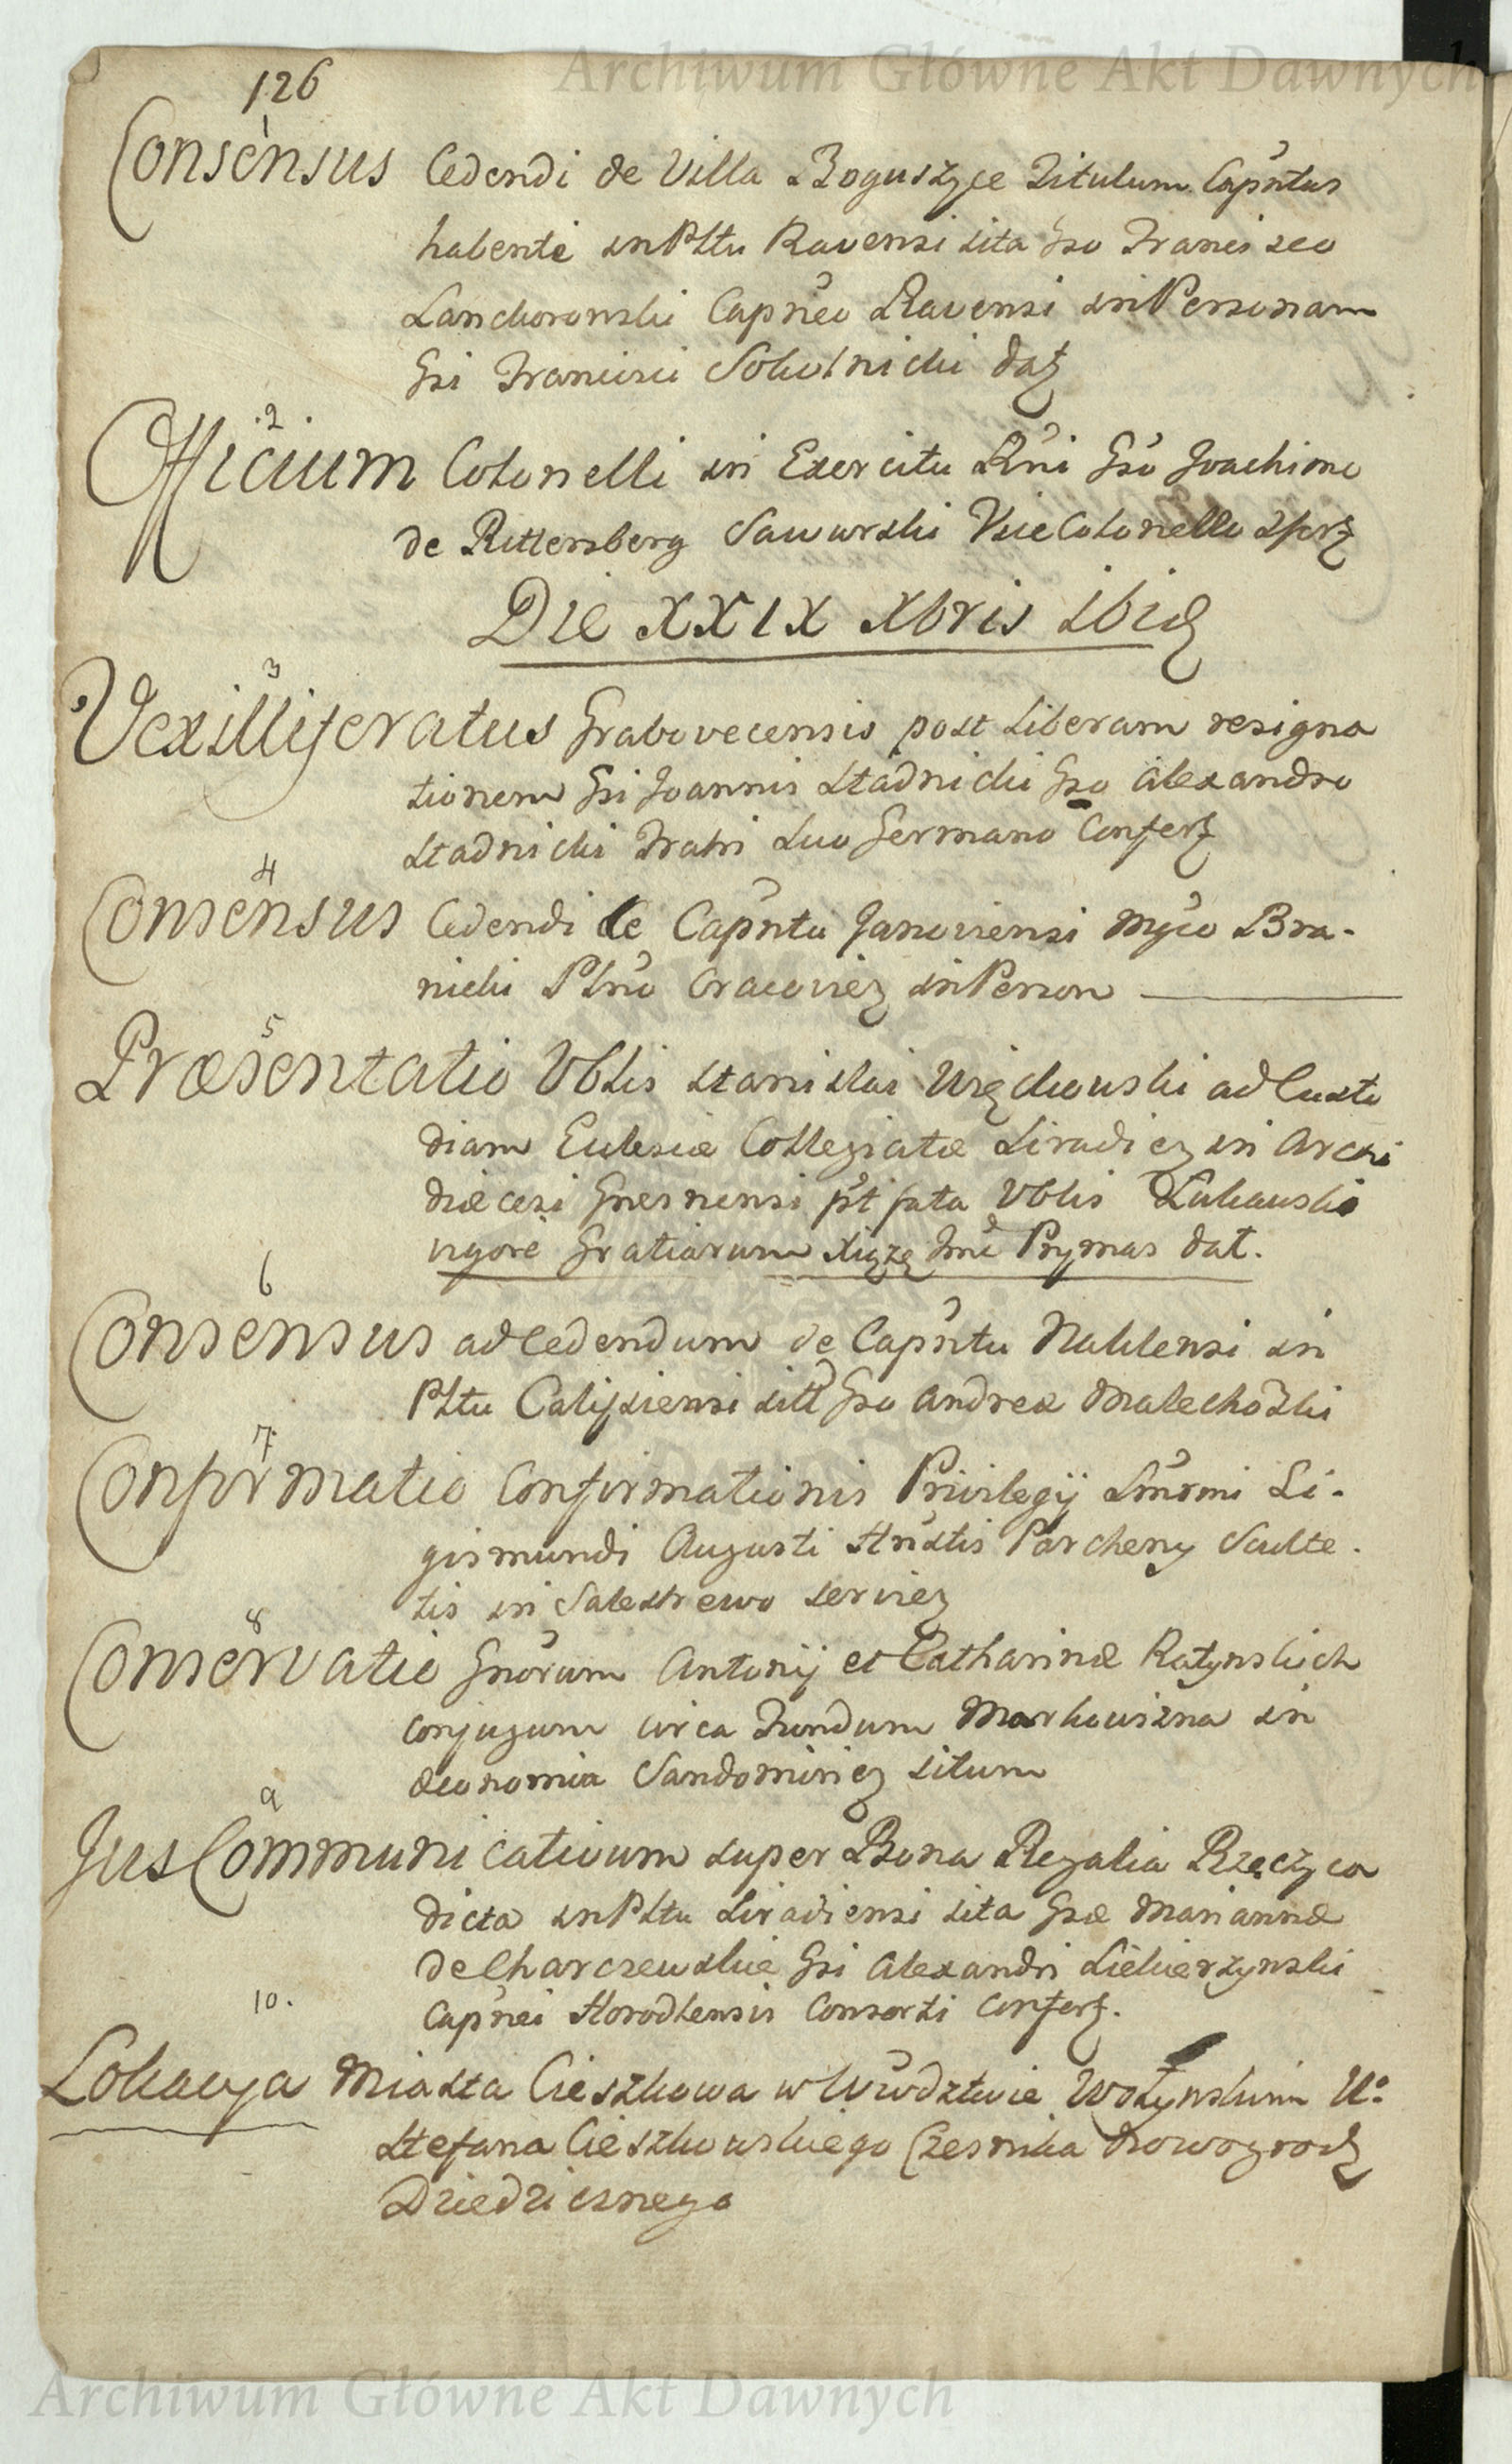 Archiwum Główne Akt Dawnych
126
1
Consensus Cedendi de Villa Boguszyce Titulum Capntus
habenti in Pltu Ravensi sita Gso Francisco
Lanckoronski Capneo Ravensi in Personam
Gsi Francisci Sokolnicki datz
2
Officium Colonelli in Exercitu Rni Gso Joachimo
de Rittersberg Sawurski Vice Colonello
Die XXIX Xbris ibid
3
Vexilliferatus Grabovecensis post liberam resigna
tionem Gsi Joannis Stadnicki Gso Alexandro
Stadnicki Fratri suo Germano Confertz
4
Consensus Cedendi de Capntu Janoviensi Mgco Bra-
nicki Plno Cracovien in Person
5
Præsentatio Vblis Stanislai ad Custo
diam Eclesiæ Collegiatæ Siradien in Archi
diæcesi Gnesnensi pt fata Vblis Lukawski
vigore Gratiarum Xiązę Jmc Prymas dat.
6
Consensus ad Cedendum de Capntu Naklensi in
Pltu Calissiensi Gso Andreæ Malechoski
7
Confirmatio Confirmationis Privilegij Smormi Si-
gismundi Augusti Hnstis Parcheny Sculte-
tis in Salestrewo servien
8
Conservatio Gnorum Antonij et Catharinæ Ratynskich
conjugum circa Fundum Markowizna in
Œconomia Sandomirien situm
9
Jus Communicativum super Bona Regalia Rzeczyca
dicta in Pltu Siradiensi sita Gsæ Mariannæ
de Charczewskie Gsi Alexandri Siekierzynski
Capnei Horodlensis Consorti Confertz.
10.
Lokacya Miasta Cieszkowa w Wwdztwie Wołynskim Uo
Stefana Cieszkowskiego Czesnika Nowogrod
Dziedzicznego
Archiwum Główne Akt Dawnych